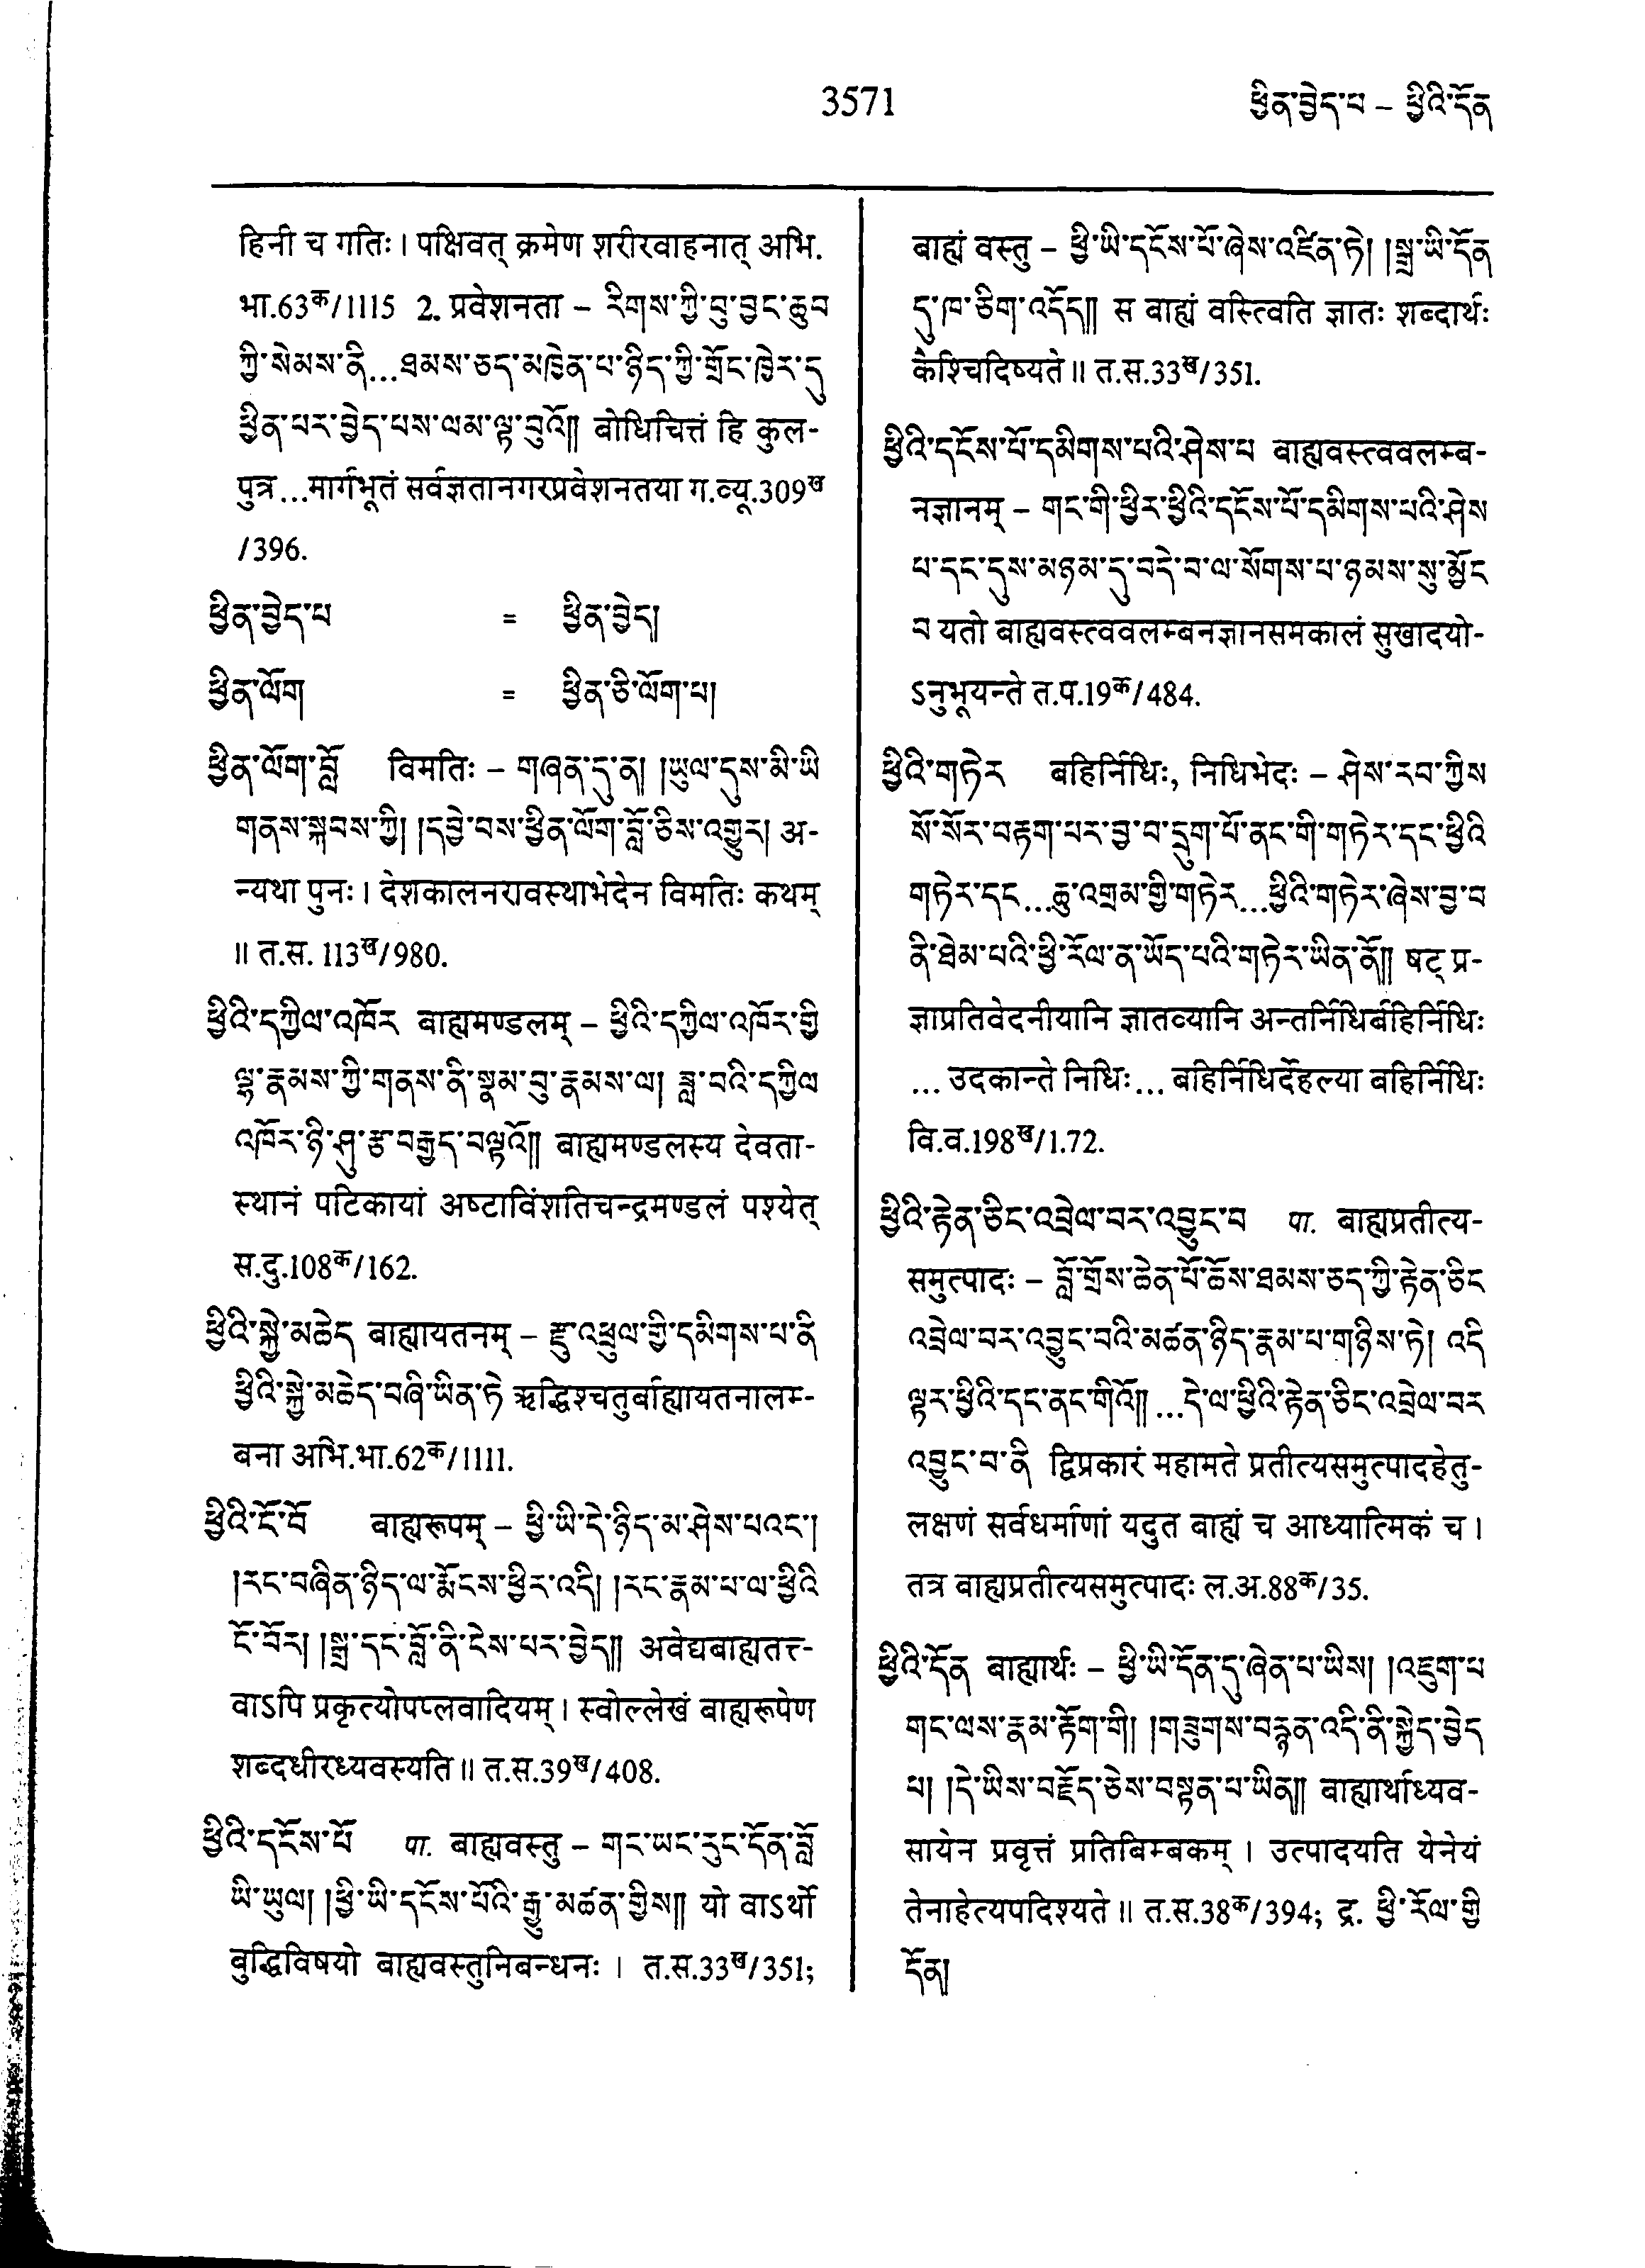 3571
ཕྱིན་བྱེད་པ – ཕྱིའི་དོན
हिनी च गतिः। पक्षिवत् क्रमेण शरीरवाहनात् अभि.
भा.63क/1115 2. प्रवेशनता – རིགས་ཀྱི་བུ་བྱང་ཆུབ
ཀྱི་སེམས་ནི...ཐམས་ཅད་མཁྱེན་པ་ཉིད་ཀྱི་གྲོང་ཁྱེར་དུ
ཕྱིན་པར་བྱེད་པས་ལམ་ལྟ་བུའོ།། बोधिचित्तं हि कुल-
पुत्र...मार्गभूतं सर्वज्ञतानगरप्रवेशनतया ग.व्यू.309ख
/396.
ཕྱིན་བྱེད་པ = ཕྱིན་བྱེད།
ཕྱིན་ལོག = ཕྱིན་ཅི་ལོག་པ།
ཕྱིན་ལོག་བློ विमतिः – གཞན་དུ་ན། །ཡུལ་དུས་མི་ཡི
གནས་སྐབས་ཀྱི། །དབྱེ་བས་ཕྱིན་ལོག་བློ་ཅིས་འགྱུར། अ-
न्यथा पुनः। देशकालनरावस्थाभेदेन विमतिः कथम्
॥ त.स. 113ख/980.
ཕྱིའི་དཀྱིལ་འཁོར बाह्यमण्डलम् – ཕྱིའི་དཀྱིལ་འཁོར་གྱི
ལྷ་རྣམས་ཀྱི་གནས་ནི་སྣམ་བུ་རྣམས་ལ། ཟླ་བའི་དཀྱིལ
འཁོར་ཉི་ཤུ་རྩ་བརྒྱད་བལྟའོ།། बाह्यमण्डलस्य देवता-
स्थानं पटिकायां अष्टाविंशतिचन्द्रमण्डलं पश्येत्
स.दु.108क/162.
ཕྱིའི་སྐྱེ་མཆེད बाह्यायतनम् – རྫུ་འཕྲུལ་གྱི་དམིགས་པ་ནི
ཕྱིའི་སྐྱེ་མཆེད་བཞི་ཡིན་ཏེ ऋद्धिश्चतुर्बाह्यायतनालम्-
बना अभि.भा.62क/1111.
ཕྱིའི་ངོ་བོ बाह्यरूपम् – ཕྱི་ཡི་དེ་ཉིད་མ་ཤེས་པའང་།
།རང་བཞིན་ཉིད་ལ་རྨོངས་ཕྱིར་འདི། །རང་རྣམ་པ་ལ་ཕྱིའི
ངོ་བོར། །སྒྲ་དང་བློ་ནི་ངེས་པར་བྱེད།། अवेद्यबाह्यतत्त-
वाऽपि प्रकृत्योपप्लवादियम्। स्वोल्लेखं बाह्यरूपेण
शब्दधीरध्यवस्यति॥ त.स.39ख/408.
ཕྱིའི་དངོས་པོ पा. बाह्यवस्तु – གང་ཡང་རུང་དོན་བློ
ཡི་ཡུལ། །ཕྱི་ཡི་དངོས་པོའི་རྒྱུ་མཚན་གྱིས།། यो वाऽर्थो
बुद्धिविषयो बाह्यवस्तुनिबन्धनः । त.स.33ख/351;
बाह्यं वस्तु – ཕྱི་ཡི་དངོས་པོ་ཞེས་འཛིན་ཏེ། །སྒྲ་ཡི་དོན
དུ་ཁ་ཅིག་འདོད།། स बाह्यं वस्त्विति ज्ञातः शब्दार्थः
कैश्चिदिष्यते॥ त.स.33ख/351.
ཕྱིའི་དངོས་པོ་དམིགས་པའི་ཤེས་པ बाह्यवस्त्ववलम्ब-
नज्ञानम् – གང་གི་ཕྱིར་ཕྱིའི་དངོས་པོ་དམིགས་པའི་ཤེས
པ་དང་དུས་མཉམ་དུ་བདེ་བ་ལ་སོགས་པ་ཉམས་སུ་མྱོང
བ यतो बाह्यवस्त्ववलम्बनज्ञानसमकालं सुखादयो-
ऽनुभूयन्ते त.प.19क/484.
ཕྱིའི་གཏེར बहिर्निधिः, निधिभेदः – ཤེས་རབ་ཀྱིས
སོ་སོར་བརྟག་པར་བྱ་བ་དྲུག་པོ་ནང་གི་གཏེར་དང་ཕྱིའི
གཏེར་དང...ཆུ་འགྲམ་གྱི་གཏེར...ཕྱིའི་གཏེར་ཞེས་བྱ་བ
ནི་ཐེམ་པའི་ཕྱི་རོལ་ན་ཡོད་པའི་གཏེར་ཡིན་ནོ།། षट् प्र-
ज्ञाप्रतिवेदनीयानि ज्ञातव्यानि अन्तर्निधिर्बहिर्निधिः
... उदकान्ते निधिः... बहिर्निधिर्देहल्या बहिर्निधिः
वि.व.198ख/1.72.
ཕྱིའི་རྟེན་ཅིང་འབྲེལ་བར་འབྱུང་བ पा. बाह्यप्रतीत्य-
समुत्पादः – བློ་གྲོས་ཆེན་པོ་ཆོས་ཐམས་ཅད་ཀྱི་རྟེན་ཅིང
འབྲེལ་བར་འབྱུང་བའི་མཚན་ཉིད་རྣམ་པ་གཉིས་ཏེ། འདི
ལྟར་ཕྱིའི་དང་ནང་གིའོ།། ...དེ་ལ་ཕྱིའི་རྟེན་ཅིང་འབྲེལ་བར
འབྱུང་བ་ནི द्विप्रकारं महामते प्रतीत्यसमुत्पादहेतु-
लक्षणं सर्वधर्माणां यदुत बाह्यं च आध्यात्मिकं च।
तत्र बाह्यप्रतीत्यसमुत्पादः ल.अ.88क/35.
ཕྱིའི་དོན बाह्यार्थः – ཕྱི་ཡི་དོན་དུ་ཞེན་པ་ཡིས། །འཇུག་པ
གང་ལས་རྣམ་རྟོག་གི། །གཟུགས་བརྙན་འདི་ནི་སྐྱེད་བྱེད
པ། །དེ་ཡིས་བརྗོད་ཅེས་བསྟན་པ་ཡིན།། बाह्यार्थाध्यव-
सायेन प्रवृत्तं प्रतिबिम्बकम्। उत्पादयति येनेयं
तेनाहेत्यपदिश्यते॥ त.स.38क/394; द्र. ཕྱི་རོལ་གྱི
དོན།